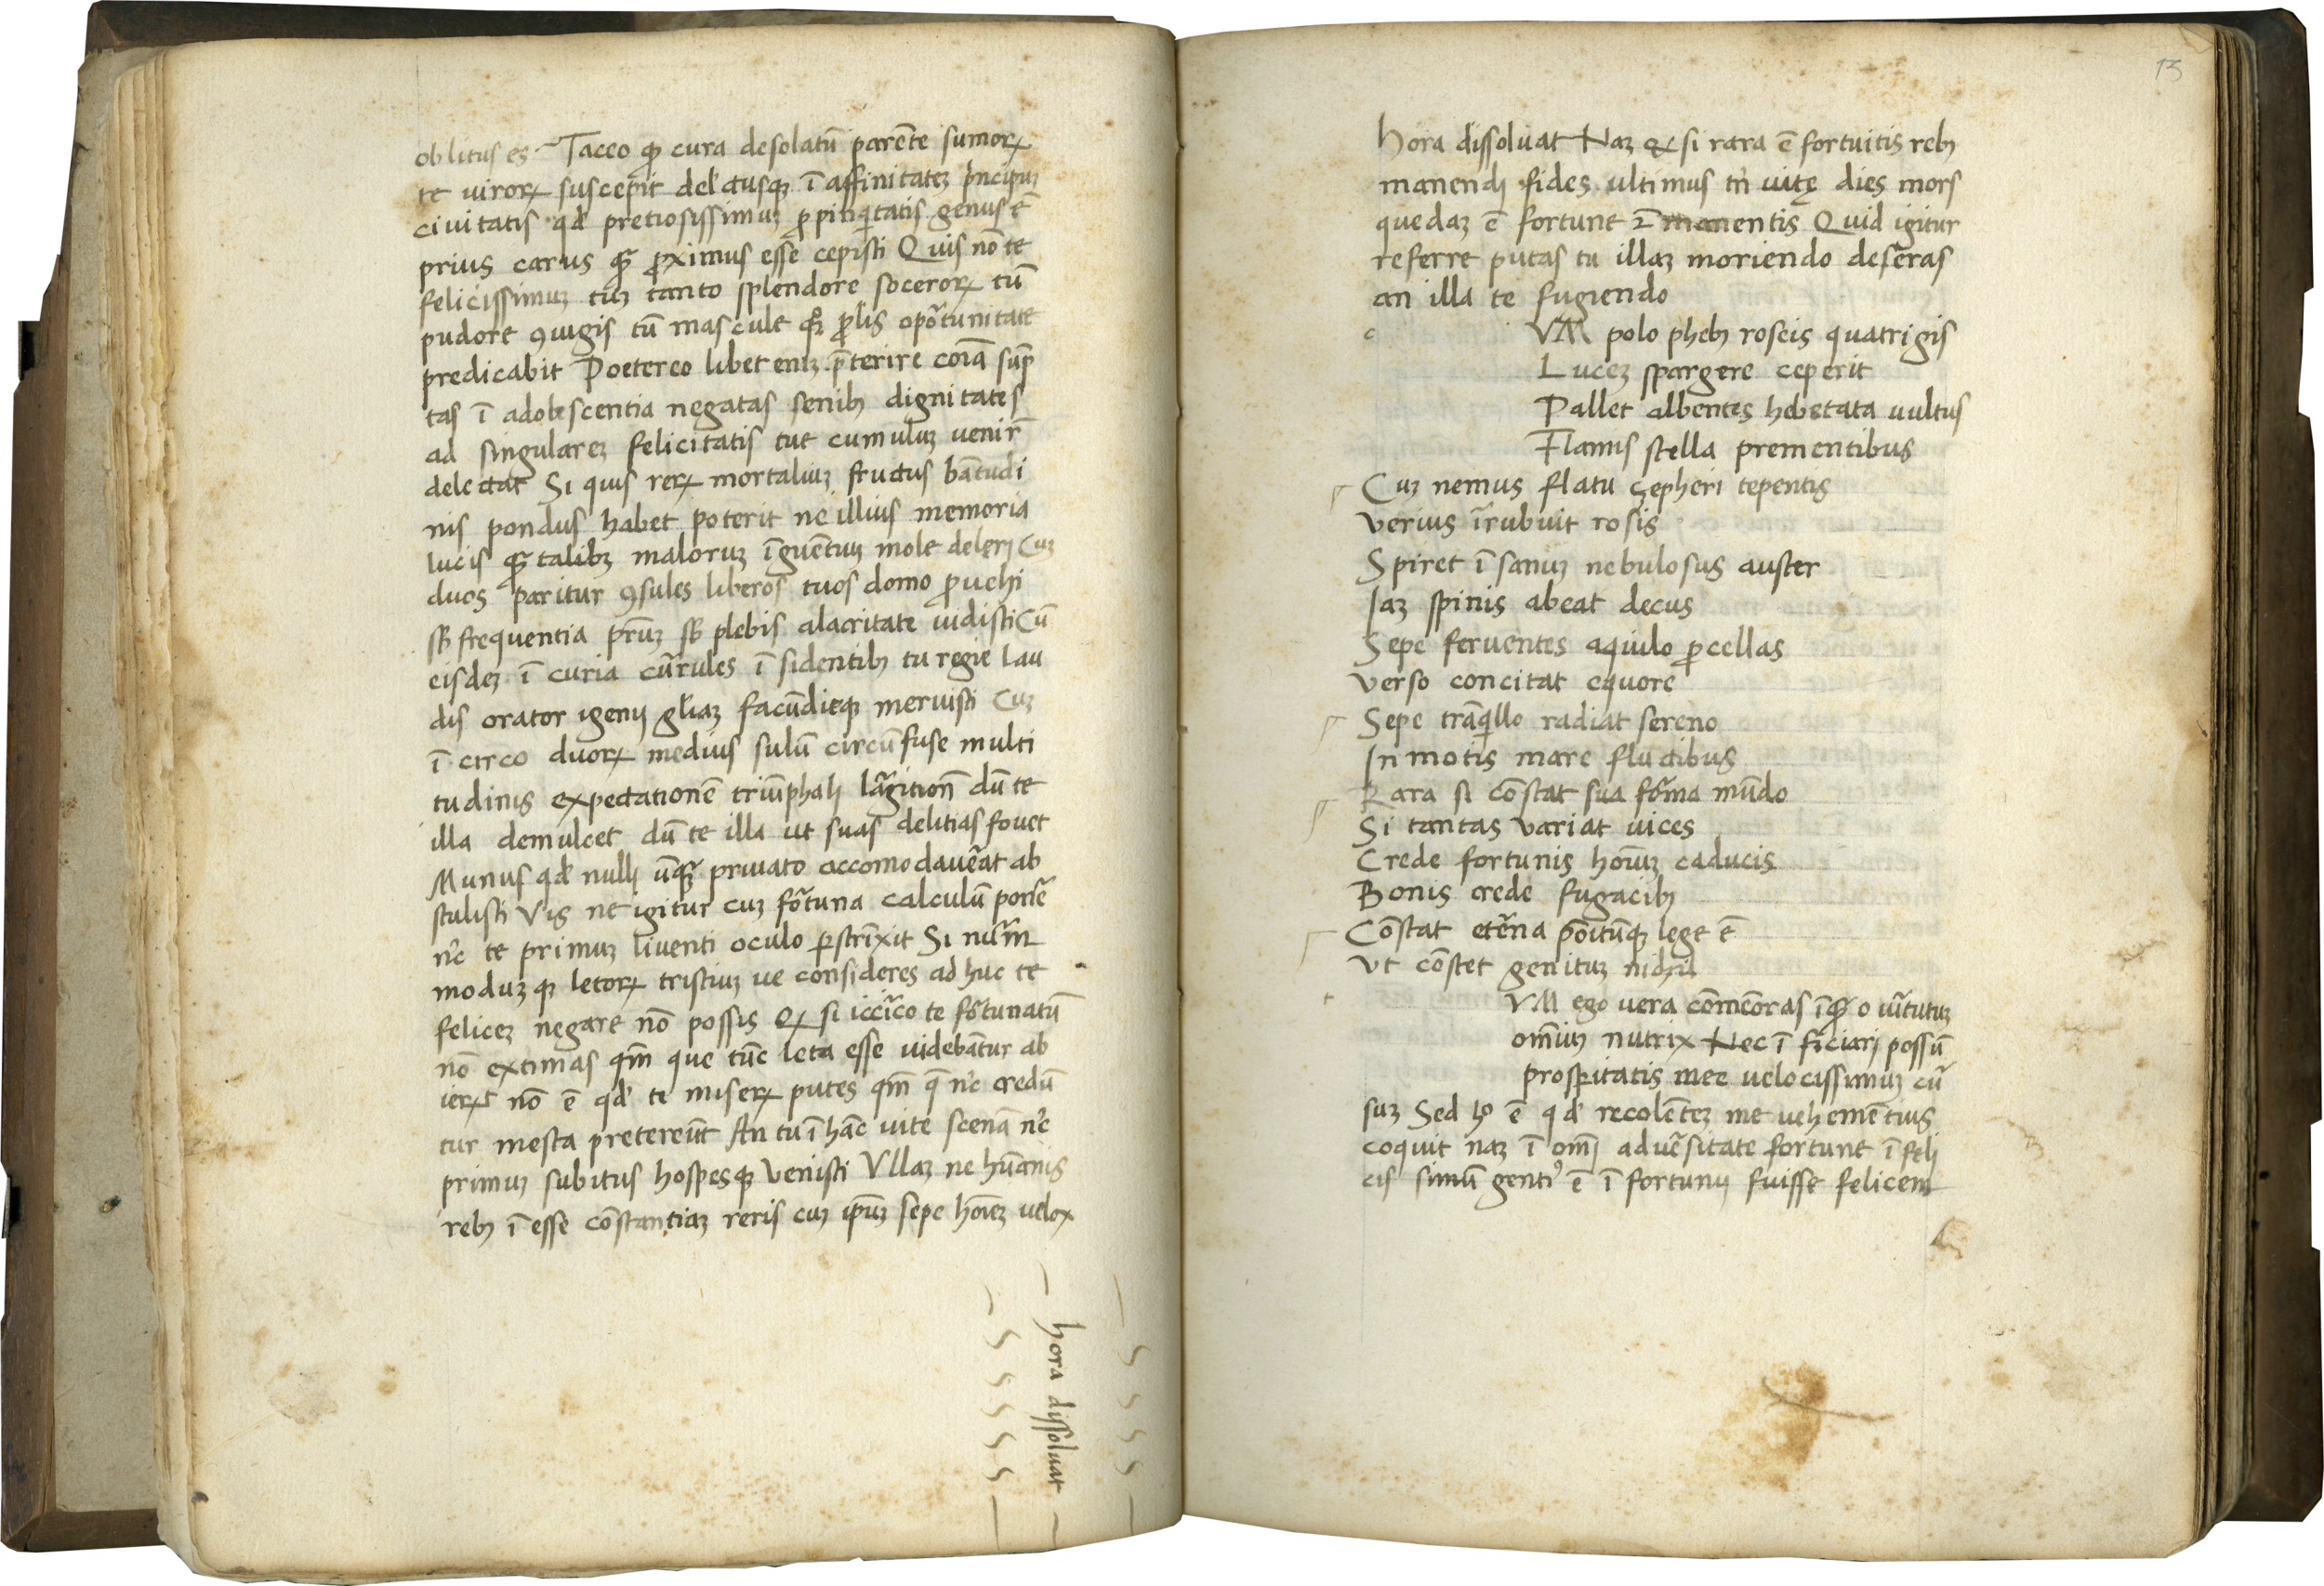 oblitus es Taceo ꝙ cura desolatū parēte sumoꝝ
te uiroꝝ suscepit del'ctusqꝫ ī affinitateꝫ pncipuꝫ
ciuitatis qd' pretiosissimuꝫ ꝓpinqitatis genus ē
prius carus qꝫ̃ ꝓximus esse cepisti Quis nō te
felicissimuꝫ cuꝫ tanto splendore soceroꝝ tū
pudore ꝯiugis tū mascule qꝫ ꝓlis opõtunitate
predicabit Poetereo libet eniꝫ p̄terire coīa sūp
tas ī adolescentia negatas senibꝫ dignitates
ad singulareꝫ felicitatis tue cumuluꝫ uenir̃
delectat Si quis reꝝ mortaliuꝫ fructus bātudi
nis pondus habet poterit ne illius memoria
lucis qꝫ̃ talibꝫ maloruꝫ īgruētiuꝫ mole deleri Cuꝫ
duos pariter ꝯsules liberos tuos domo ꝓuehi
sb̄ frequentia pr̄uꝫ sb̄ plebis alacritate uidisti Cū
eisdeꝫ ī curia cur̄ules ī sidentibꝫ tu regie lau
dis orator igenij gl'iaꝫ facūdieqꝫ meruisti Cuꝫ
ī circo duoꝝ medius sulū circūfuse multi
tudinis expectationē triūphali lar̄gition̄ dū te
illa demulcet dū te illa ut suas delitias fouet
Munus qd' nulli ūqꝫ̃ priuato accomodauer̄at ab
stulisti Vis ne igitur cuꝫ for̄tuna calculū poner̄
nc̄ te primuꝫ liuenti oculo ꝑstrīxit Si num̄
moduꝫ qꝫ letoꝝ tristiuꝫ ue consideres ad huc te
feliceꝫ negare nō possis Qꝫ si iccir̄co te for̄tunatū
nō extimas qm̄ que tūc leta esse uidebātur ab
ieꝝt nō ē qd' te miseꝝ putes qm̄ q̄ nc̄ credū
tur mesta pretereūt An tu ī hāc uite scenā nc̄
primuꝫ subitus hospesqꝫ venisti Vllaꝫ ne hūanis
rebꝫ ī esse cōstantiaꝫ reris cuꝫ ip̄uꝫ sepe hoīeꝫ uelox
hora dissoluat
13
hora dissoluat Naꝫ & si rara ē fortuitis rebꝫ
manendi fides ultimus tn̄ uitę dies mors
quedaꝫ ē fortune manentis Quid igitur
referre putas tu illaꝫ moriendo deser̄as
an illa te fugiendo
c VM polo phebꝫ roseis quatrigis
Luceꝫ spargere ceperit
Pallet albentes hebetata uultus
Flamis stella prementibus
Cuꝫ nemus flatu çepheri tepentis
Verius īrubuit rosis
Spiret ī sanuꝫ nebulosus auster
Jaꝫ spinis abeat decus
Sepe feruentes aquilo ꝓcellas
Verso concitat equore
Sepe trāqillo radiat sereno
In motis mare fluctibus
Rara si cōstat sua for̄ma mūdo
Si tantas variat uices
Crede fortunis hoīuꝫ caducis
Bonis crede fugacibꝫ
Cōstat eter̄na pōitūqꝫ lege ē
Vt cōstet genituꝫ nichil
t VM ego uera cōmeōras īqꝫ̃ o uir̄tutuꝫ
om̄iuꝫ nutrix Nec ī ficiari possū
prosꝑitatis mee uelocissimuꝫ cur̄
suꝫ Sed h̊ ē qd' recolēteꝫ me uehemētius
coquit naꝫ ī om̄i aduer̄sitate fortune ī feli
cis simū genus ē ī fortunij fuisse felicem